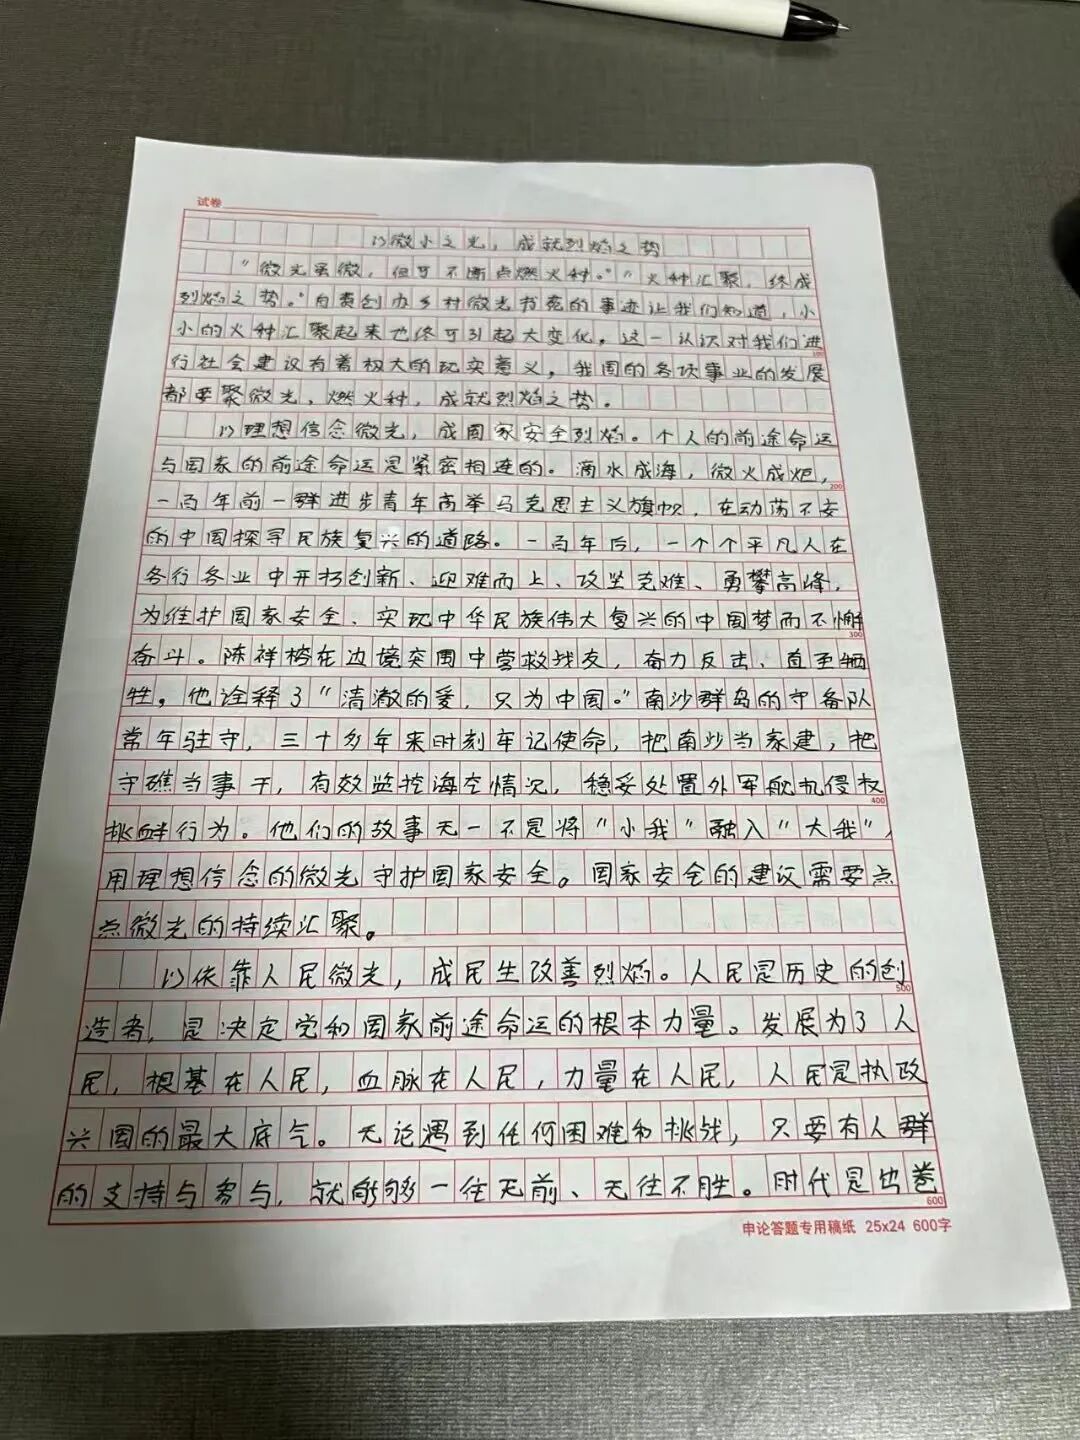 试卷
以微小之光，成就烈焰之势
“微光虽微，但可不断点燃火种。”“火种汇聚，终成
烈焰之势。”自费创办乡村微光书苑的事迹让我们知道，小
小的火种汇聚起来也终可引起大变化，这一认识对我们进
100
行社会建设有着极大的现实意义，我国的各项事业的发展
都要聚微光，燃火种，成就烈焰之势。
以理想信念微光，成国家安全烈焰。个人的前途命运
与国家的前途命运是紧密相连的。滴水成海，微火成炬，
200
一百年前一群进步青年高举马克思主义旗帜，在动荡不安
的中国探寻民族复兴的道路。一百年后，一个个平凡人在
各行各业中开拓创新、迎难而上、攻坚克难、勇攀高峰，
为维护国家安全、实现中华民族伟大复兴的中国梦而不懈
300
奋斗。陈祥榕在边境突围中营救战友，奋力反击、直至牺
牲，他诠释了“清澈的爱，只为中国。”南沙群岛的守备队
常年驻守，三十多年来时刻牢记使命，把南沙当家建，把
守礁当事干，有效监控海空情况，稳妥处置外军舰机侵权
400
挑衅行为。他们的故事无一不是将“小我”融入“大我”，
用理想信念的微光守护国家安全。国家安全的建设需要点
点微光的持续汇聚。
以依靠人民微光，成民生改善烈焰。人民是历史的创
500
造者，是决定党和国家前途命运的根本力量。发展为了人
民，根基在人民，血脉在人民，力量在人民，人民是执政
兴国的最大底气。无论遇到任何困难和挑战，只要有人群
的支持与参与，就能够一往无前、无往不胜。时代是出卷
600
申论答题专用稿纸 25x24 600字